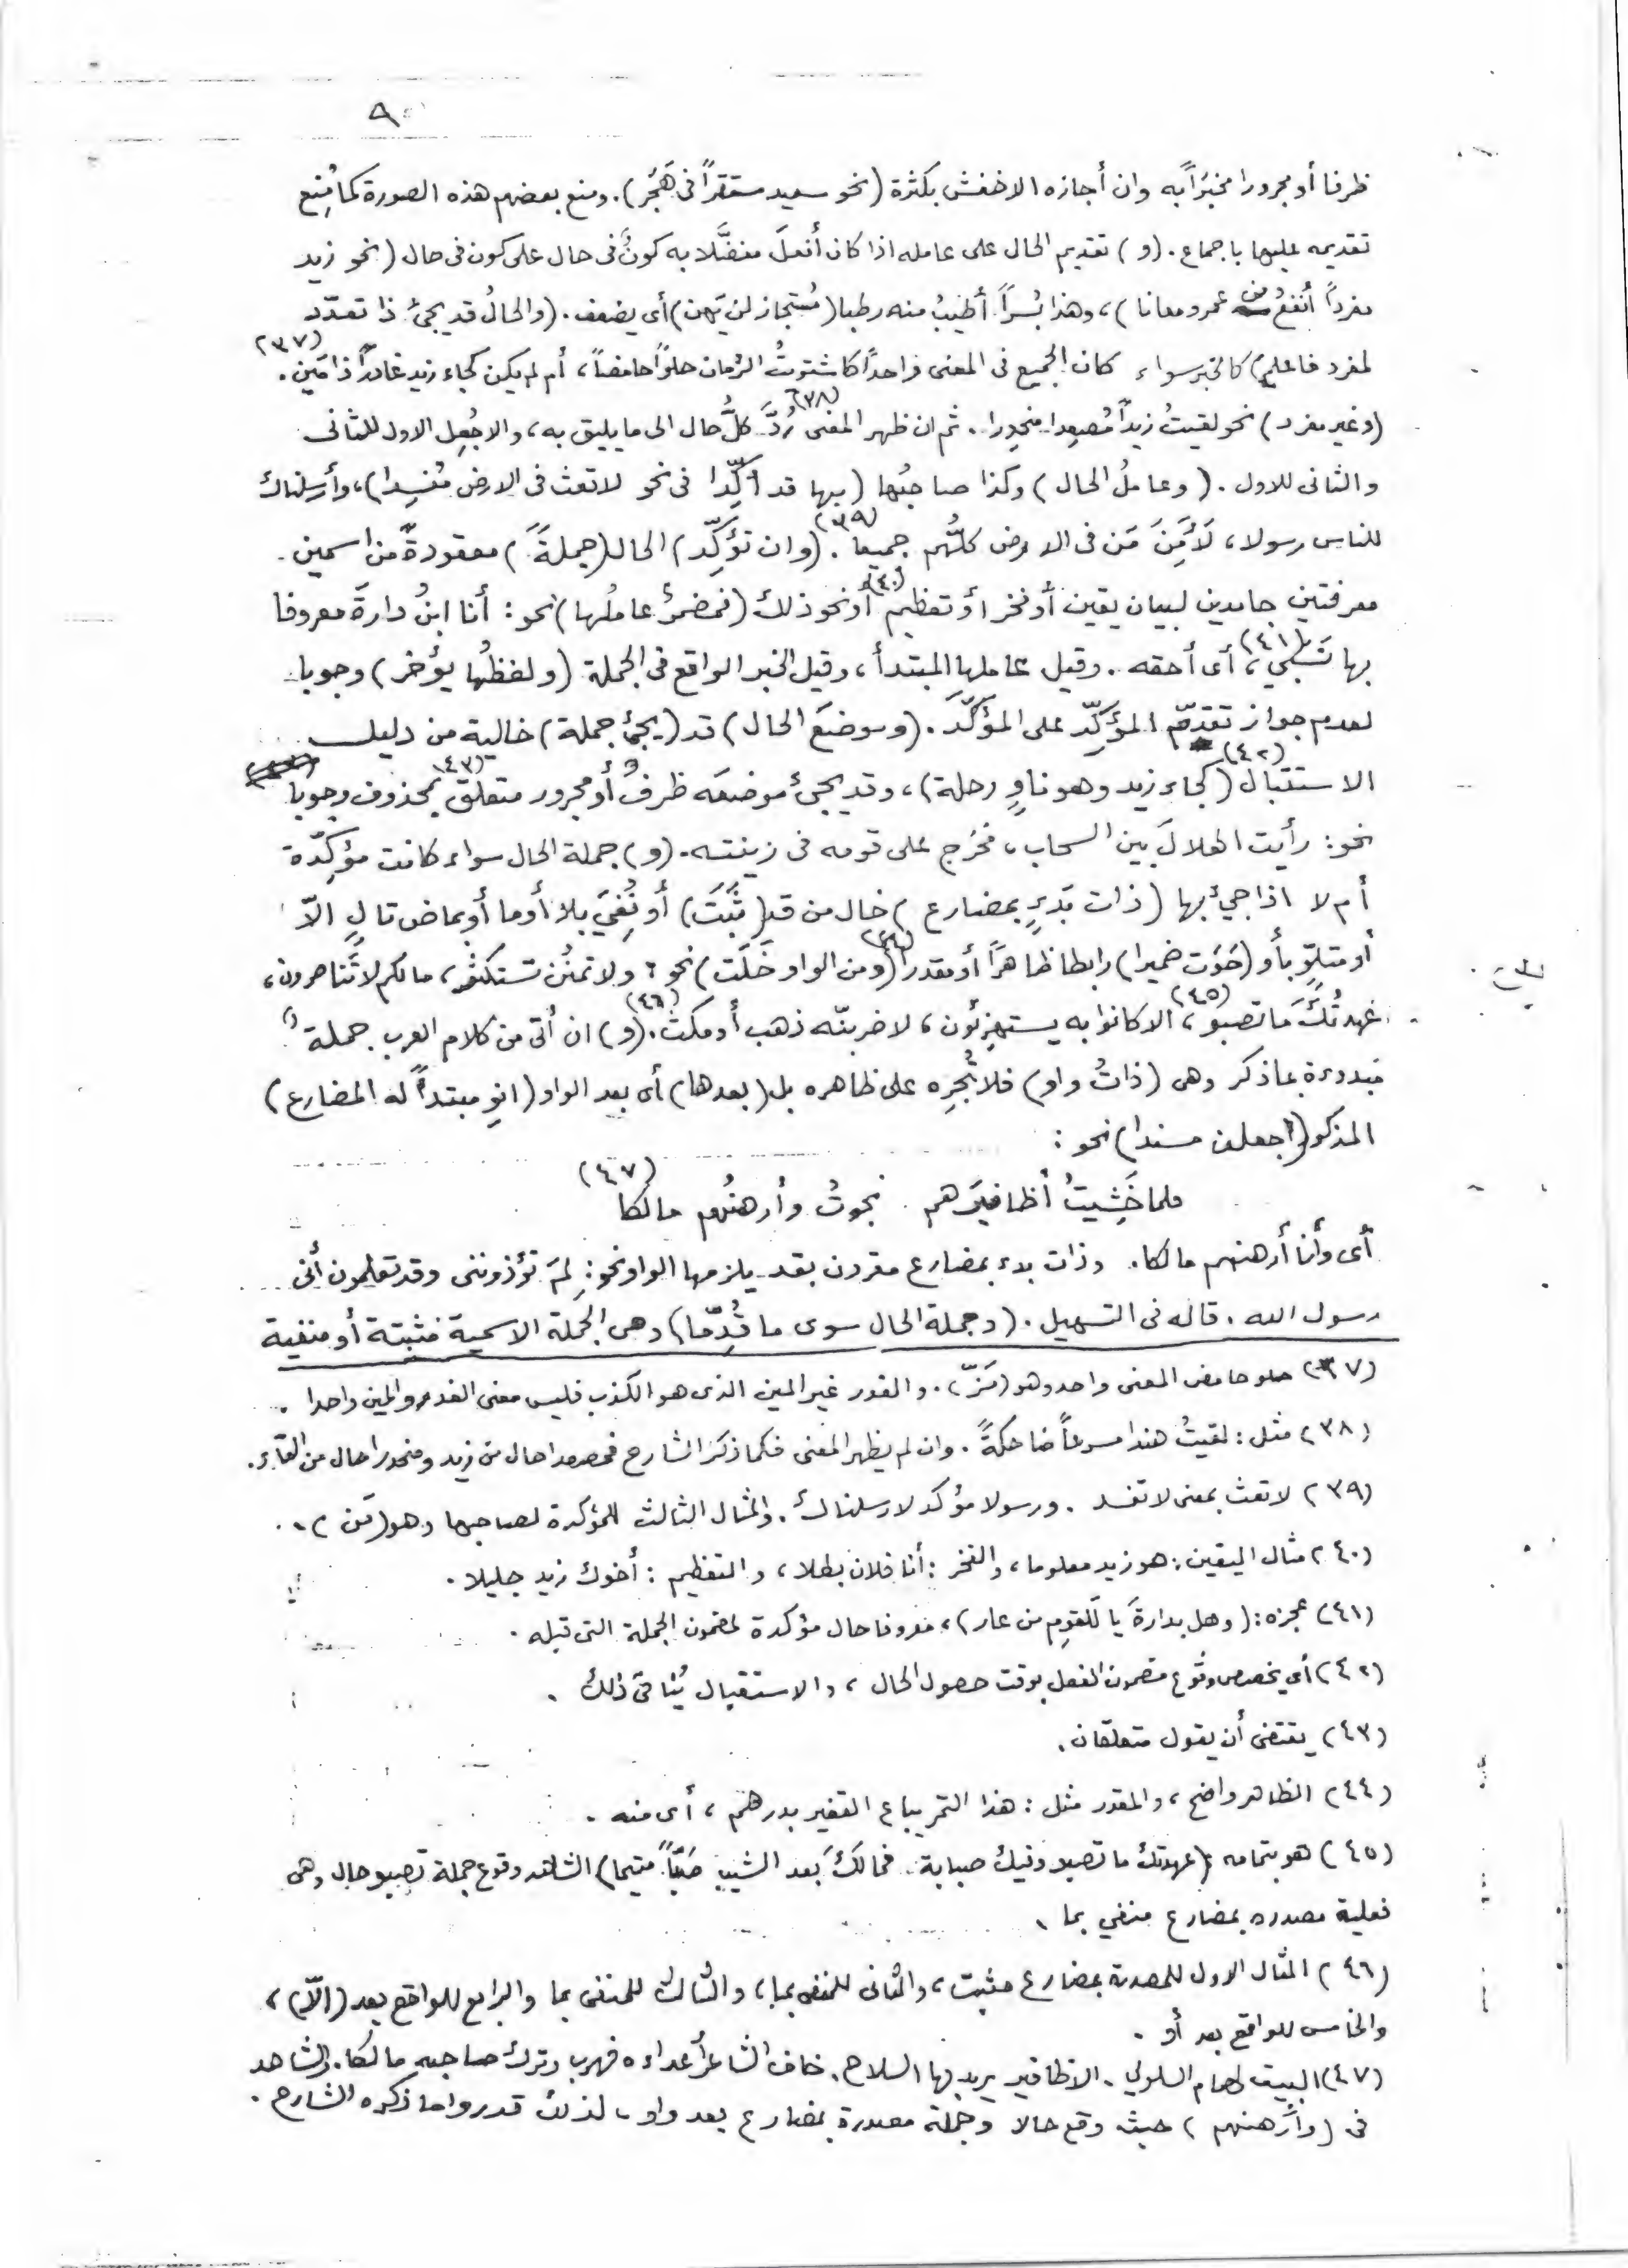 ٩
ظرفا أو مجرورا مخبَراً به وان أجازه الاخفش بكثرة (نحو سعيد مستقراً فى هَجَر). ومنع بعضهم هذه الصورة كما مُنِع
تقديمه عليها باجماع. (و) تقديم الحال على عامله اذا كان أفعلَ مفضَّلا به كونٌ فى حال على كون فى حال (نحو زيد
مفرداً أنفعُ من عمرو معانا)، وهذا بُسراً أطيبُ منه رطبا (مُستجاز لن يَهِن) أى يضعف. (والحالُ قد يجئ ذا تعدّد
لمفرد فاعلم) كالخبر سواء كان الجميع فى المعنى واحداً كاشتريتُ الرمان حلواً حامضاً، أم لم يكن كجاء زيد غادراً ذا مَين. (٣٧)
(وغير مفرد) نحو لقيتُ زيداً مُصعِدا منحدِرا. ثم ان ظهر المعنى رُدَّ (٣٨) كلُّ حال الى ما يليق به، والا جُعِل الاول للثانى
والثانى للاول. (وعاملُ الحال) وكذا صاحبُها (بها قد أُكِّدا فى نحو لا تعث فى الارض مُفسِدا)، وأرسلناك
للناس رسولا، لَآمَنَ مَن فى الارض كلُّهم جميعا (٣٩). (وان تؤكِّد) الحال (جملةً) معقودةً من اسمين
معرفتين جامدين لبيان يقين أو فخر أو تعظيم (٤٠) أو نحو ذلك (فمضمرٌ عاملُها) نحو: أنا ابنُ دارةَ معروفا
بها نَسَبي (٤١)، أى أحقه. وقيل عاملها المبتدأ، وقيل الخبر الواقع فى الجملة (ولفظُها يؤخر) وجوبا
لعدم جواز تقدّم المؤكِّد على المؤكَّد. (وموضعَ الحال) قد (يجئُ جملة) خالية من دليل
الاستقبال (٤٢) (كجاء زيد وهو ناوٍ رحلة)، وقد يجئ موضعَه ظرفٌ أو مجرور متعلق (٤٣) بمحذوف وجوبا
نحو: رأيت الهلالَ بين السحاب، فخرج على قومه فى زينته. (و) جملة الحال سواء كانت مؤكِّدة
أم لا اذا جيئ بها (ذات بَدءٍ بمضارع) خال من قد (ثَبَتَ) أو نُفِيَ بلا أو ما أو بماض تالٍ الّا
أو متلوٍّ بأو (حَوَت ضميرا) رابطا ظاهراً أو مقدرا (٤٤) (ومن الواو خَلَت) نحو: ولا تمنُن تستكثر، مالكم لا تَناصرون،
عهِدتُكَ ما تصبو (٤٥)، الا كانوا به يستهزئون، لاضربنّه ذهب أو مكث (٤٦). (و) ان أتى من كلام العرب جملة
مبدوءة بما ذكر وهى (ذاتُ واو) فلا تُجرِه على ظاهره بل (بعدها) أى بعد الواو (انوِ مبتدأً له المضارع)
المذكور (اجعلن مسندا) نحو:
فلما خَشِيتُ أظافيرَهم نجوتُ وأرهنُهم مالكا (٤٧)
أى وأنا أرهنهم مالكا. وذات بدء بمضارع مقرون بقد يلزمها الواو نحو: لِمَ تؤذوننى وقد تعلمون أنى
رسول الله. قاله فى التسهيل. (وجملة الحال سوى ما قُدِّما) وهى الجملة الاسمية مثبتة أو منفية
(٣٧) حلو حامض المعنى واحد وهو (مَزّ). والغدر غير المين الذى هو الكذب فليس معنى الغدر والمين واحدا.
(٣٨) مثل: لقيتُ هندا مسرعاً ضاحكةً. وان لم يظهر المعنى فكما ذكر الشارح فمصعدا حال من زيد ومنحدرا حال من التاء.
(٣٩) لا تعث بمعنى لا تفسد. ورسولا مؤكد لارسلناك. والمثال الثالث للمؤكدة لصاحبها وهو (مَن).
(٤٠) مثال اليقين: هو زيد معلوما، والفخر: أنا فلان بطلا، والتعظيم: أخوك زيد جليلا.
(٤١) عجزه: (وهل بدارةَ يا لَلقومِ من عار)، معروفا حال مؤكدة لمضمون الجملة التى قبله.
(٤٢) أى يخصص وقوع مضمون الفعل بوقت حصول الحال، والاستقبال يُنافى ذلك.
(٤٣) يقتضى أن يقول متعلقان.
(٤٤) الظاهر واضح، والمقدر مثل: هذا التمر يباع القفيز بدرهم، أى منه.
(٤٥) هو بتمامه: (عهدتك ما تصبو وفيك صبابة فمالكَ بعد الشيب صَبّاً متيما) الشاهد وقوع جملة تصبو حال وهى
فعلية مصدره بمضارع منفي بما.
(٤٦) المثال الاول للمصدرة بمضارع مثبت، والثانى للمنفى بما، والثالث للمنفى بما والرابع للواقع بعد (الّا)،
والخامس للواقع بعد أو.
(٤٧) البيت لهمام السلولي. الاظافير يريد بها السلاح. خاف الشاعر أعداءه فهرب وترك صاحبه مالكا. والشاهد
فى (وأرهنهم) حيث وقع حالا وجملة مصدرة بمضارع بعد واو، لذلك قدروا ما ذكره الشارح.